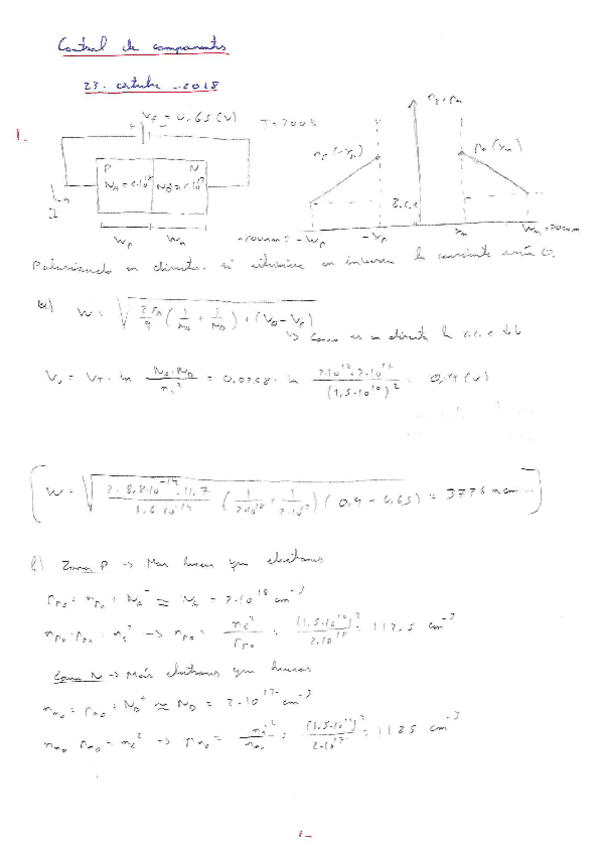 Control de componentes
23 - octubre - 2018
1.
V_F = 0.65 (V)
T = 300 K
n_p, p_n
P N
N_A = 2·10^18 N_D = 2·10^17
n_p(-x_p)
p_n(x_n)
I
z.c.e
W_p W_n
-W_p -x_p x_n W_n
Polarizando en directa. si estuviese en inversa la corriente sería 0.
a) W = √( (2 ε / q) (1/N_A + 1/N_D) · (V_0 - V_F) )
↳ Como es en directa la z.c.e
V_0 = V_T · ln (N_A · N_D / n_i^2) = 0,0258 · ln (2·10^18 · 2·10^17 / (1,5·10^10)^2) = (V)
W = √( (2 · 8,8·10^-14 · 11,7 / 1.6·10^-19) (1/2·10^18 + 1/2·10^17) (0,9 - 0,65) ) =
b) Zona P → Más huecos que electrones
p_p0 = n_p0 + N_A^- ≈ N_A = 2·10^18 cm^-3
n_p0 · p_p0 = n_i^2 → n_p0 = n_i^2 / p_p0 = (1,5·10^10)^2 / 2·10^18 = 112.5 cm^-3
Zona N → Más electrones que huecos
n_n0 = p_n0 + N_D^+ ≈ N_D = 2·10^17 cm^-3
n_n0 p_n0 = n_i^2 → p_n0 = n_i^2 / n_n0 = (1,5·10^10)^2 / 2·10^17 = 1125 cm^-3
1 -